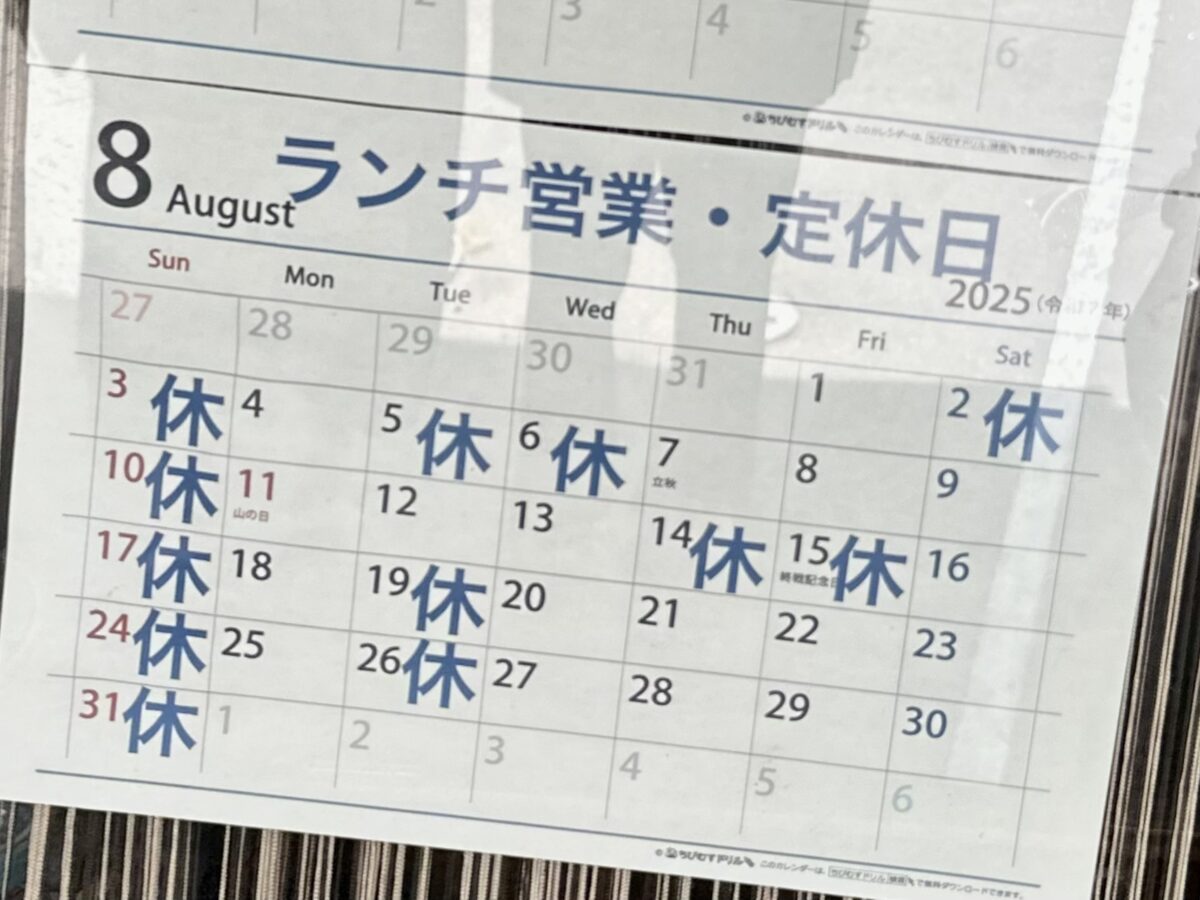 2 3 4 5 6
8 August ランチ営業・定休日
2025(令和7年)
Sun Mon Tue Wed Thu Fri Sat
27 28 29 30 31 1 2 休
3 休 4 5 休 6 休 7 立秋 8 9
10 休 11 山の日 12 13 14 休 15 終戦記念日 休 16
17 休 18 19 休 20 21 22 23
24 休 25 26 休 27 28 29 30
31 休 1 2 3 4 5 6
© ちびむすドリル このカレンダーは、ちびむすドリル 検索 で無料ダウンロードできます。